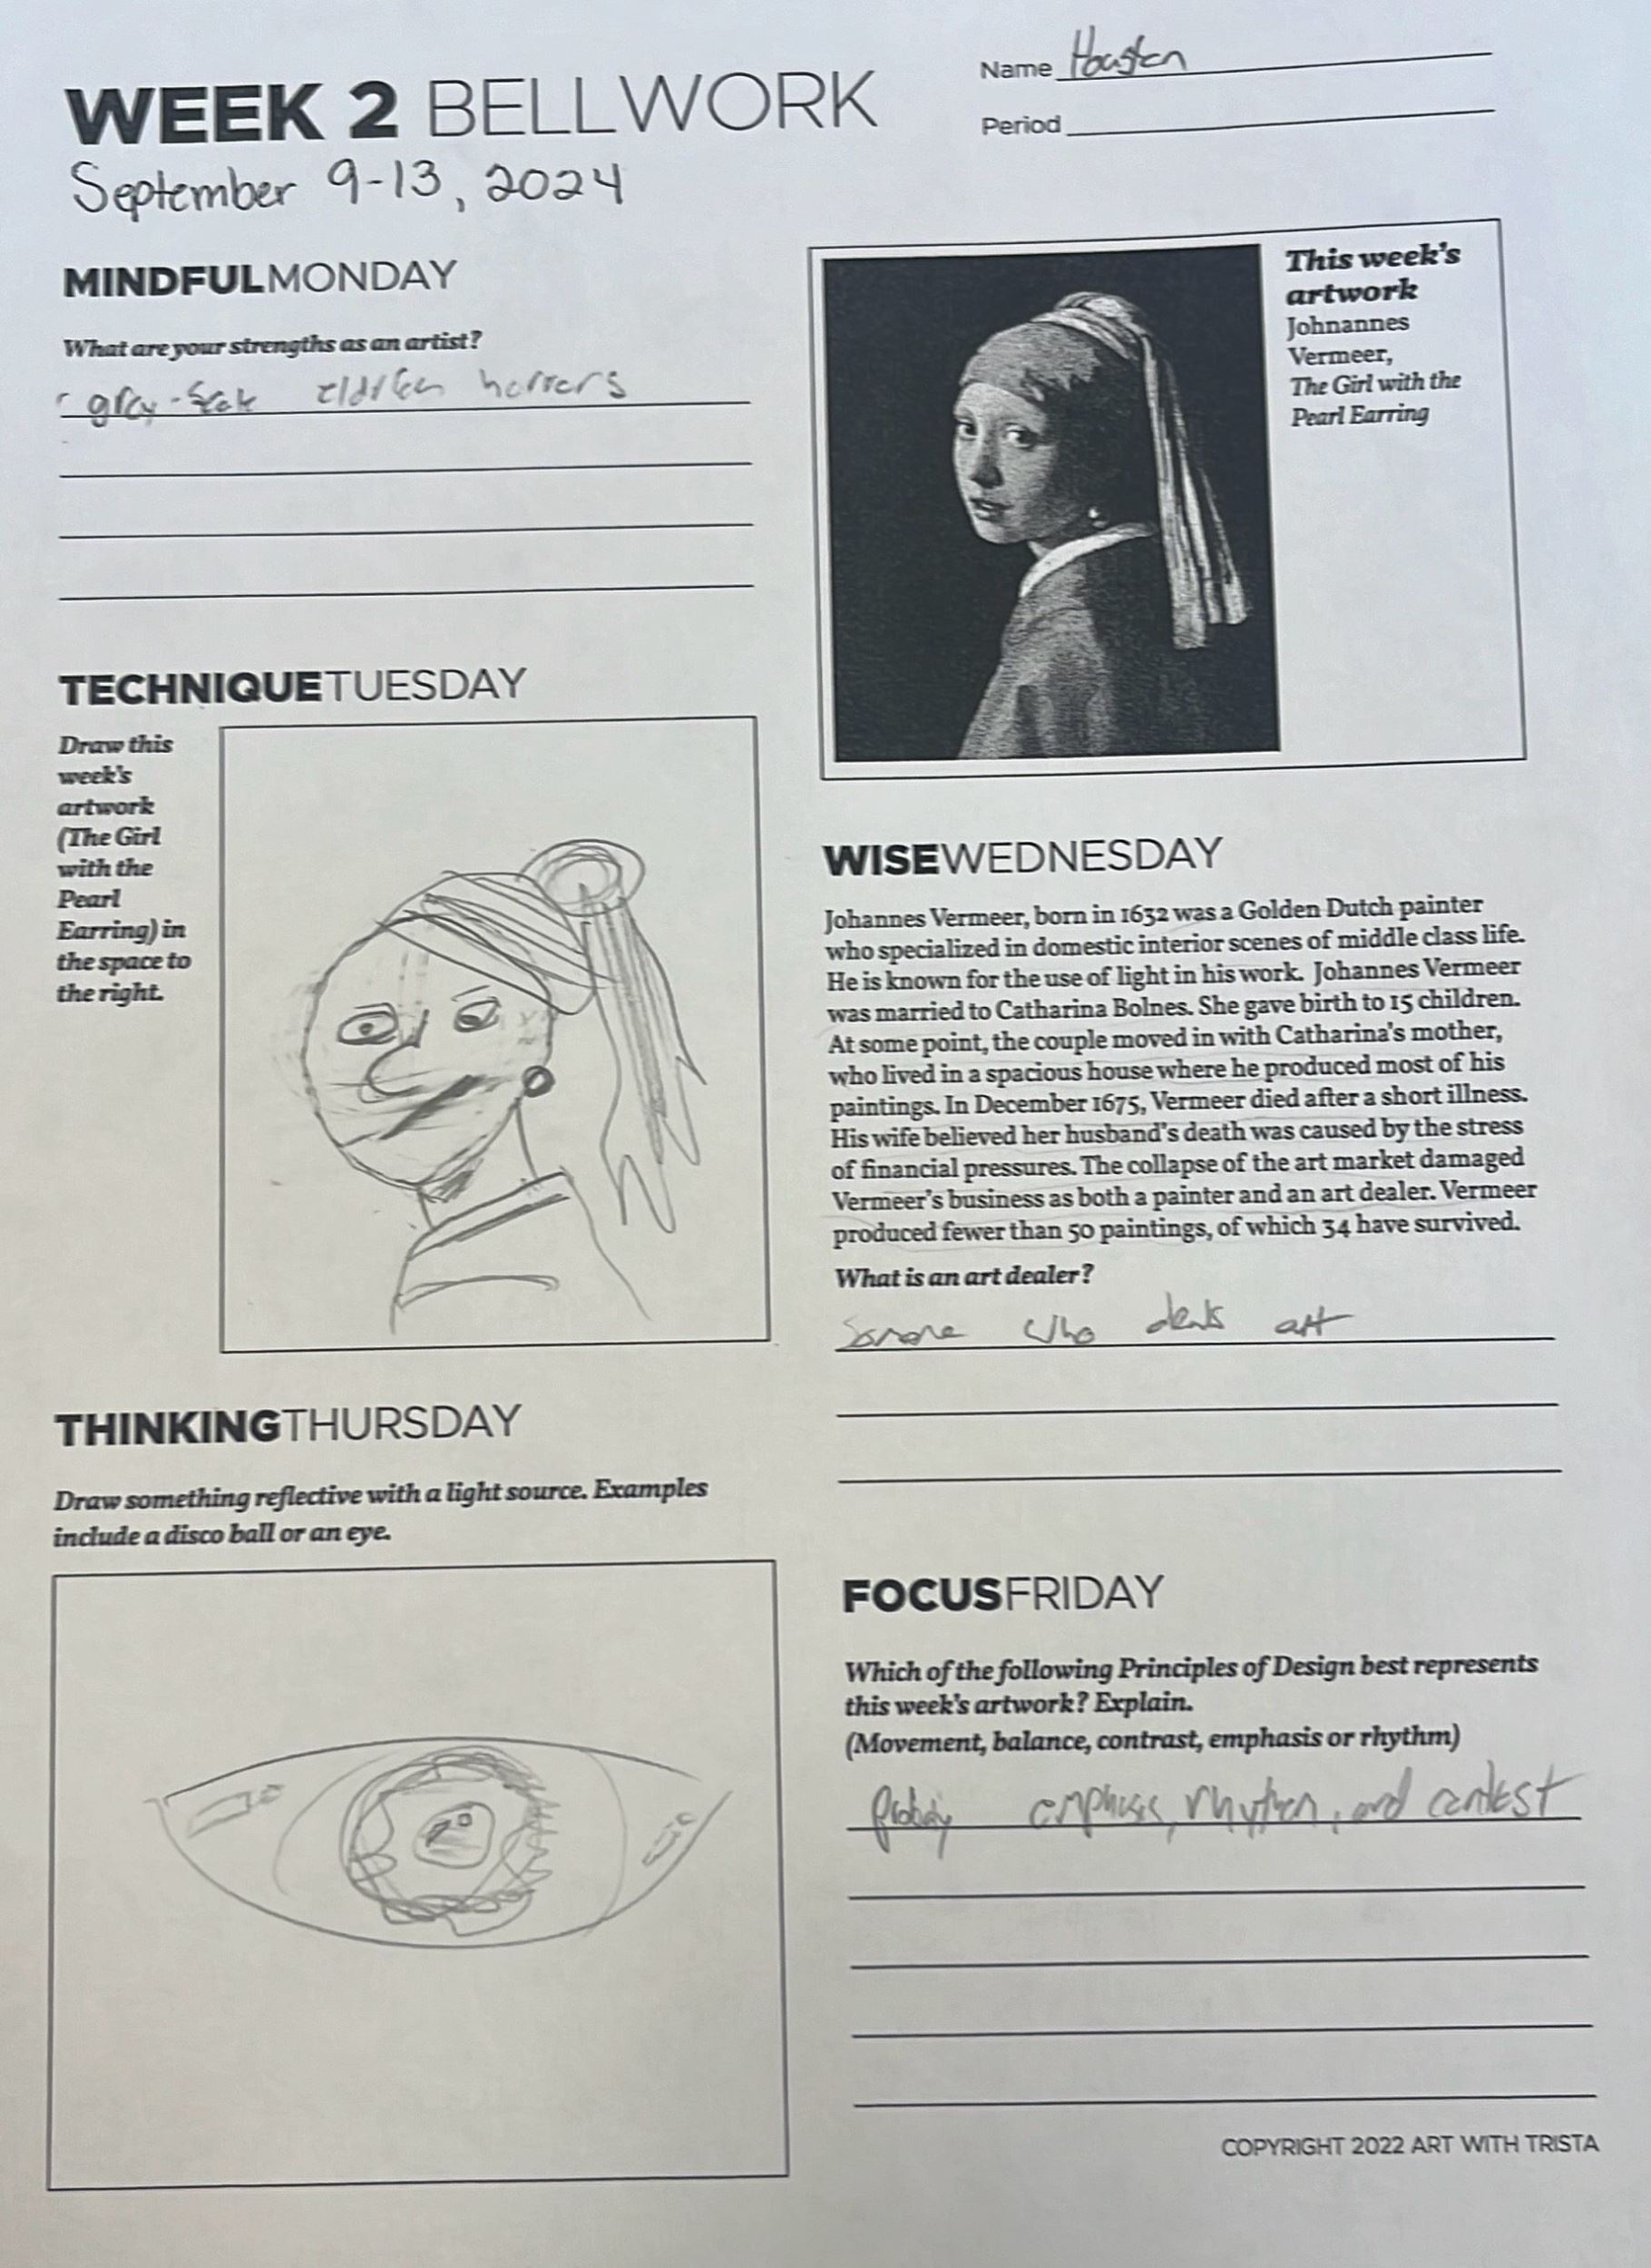 Name Housten
Period
WEEK 2 BELLWORK
September 9-13, 2024
MINDFULMONDAY
What are your strengths as an artist?
gray-scale eldritch horrors
This week's
artwork
Johnannes
Vermeer,
The Girl with the
Pearl Earring
TECHNIQUETUESDAY
Draw this
week's
artwork
(The Girl
with the
Pearl
Earring) in
the space to
the right.
WISEWEDNESDAY
Johannes Vermeer, born in 1632 was a Golden Dutch painter
who specialized in domestic interior scenes of middle class life.
He is known for the use of light in his work. Johannes Vermeer
was married to Catharina Bolnes. She gave birth to 15 children.
At some point, the couple moved in with Catharina's mother,
who lived in a spacious house where he produced most of his
paintings. In December 1675, Vermeer died after a short illness.
His wife believed her husband's death was caused by the stress
of financial pressures. The collapse of the art market damaged
Vermeer's business as both a painter and an art dealer. Vermeer
produced fewer than 50 paintings, of which 34 have survived.
What is an art dealer?
Somone who deals art
THINKINGTHURSDAY
Draw something reflective with a light source. Examples
include a disco ball or an eye.
FOCUSFRIDAY
Which of the following Principles of Design best represents
this week's artwork? Explain.
(Movement, balance, contrast, emphasis or rhythm)
emphasis, rhythm, and contest
COPYRIGHT 2022 ART WITH TRISTA